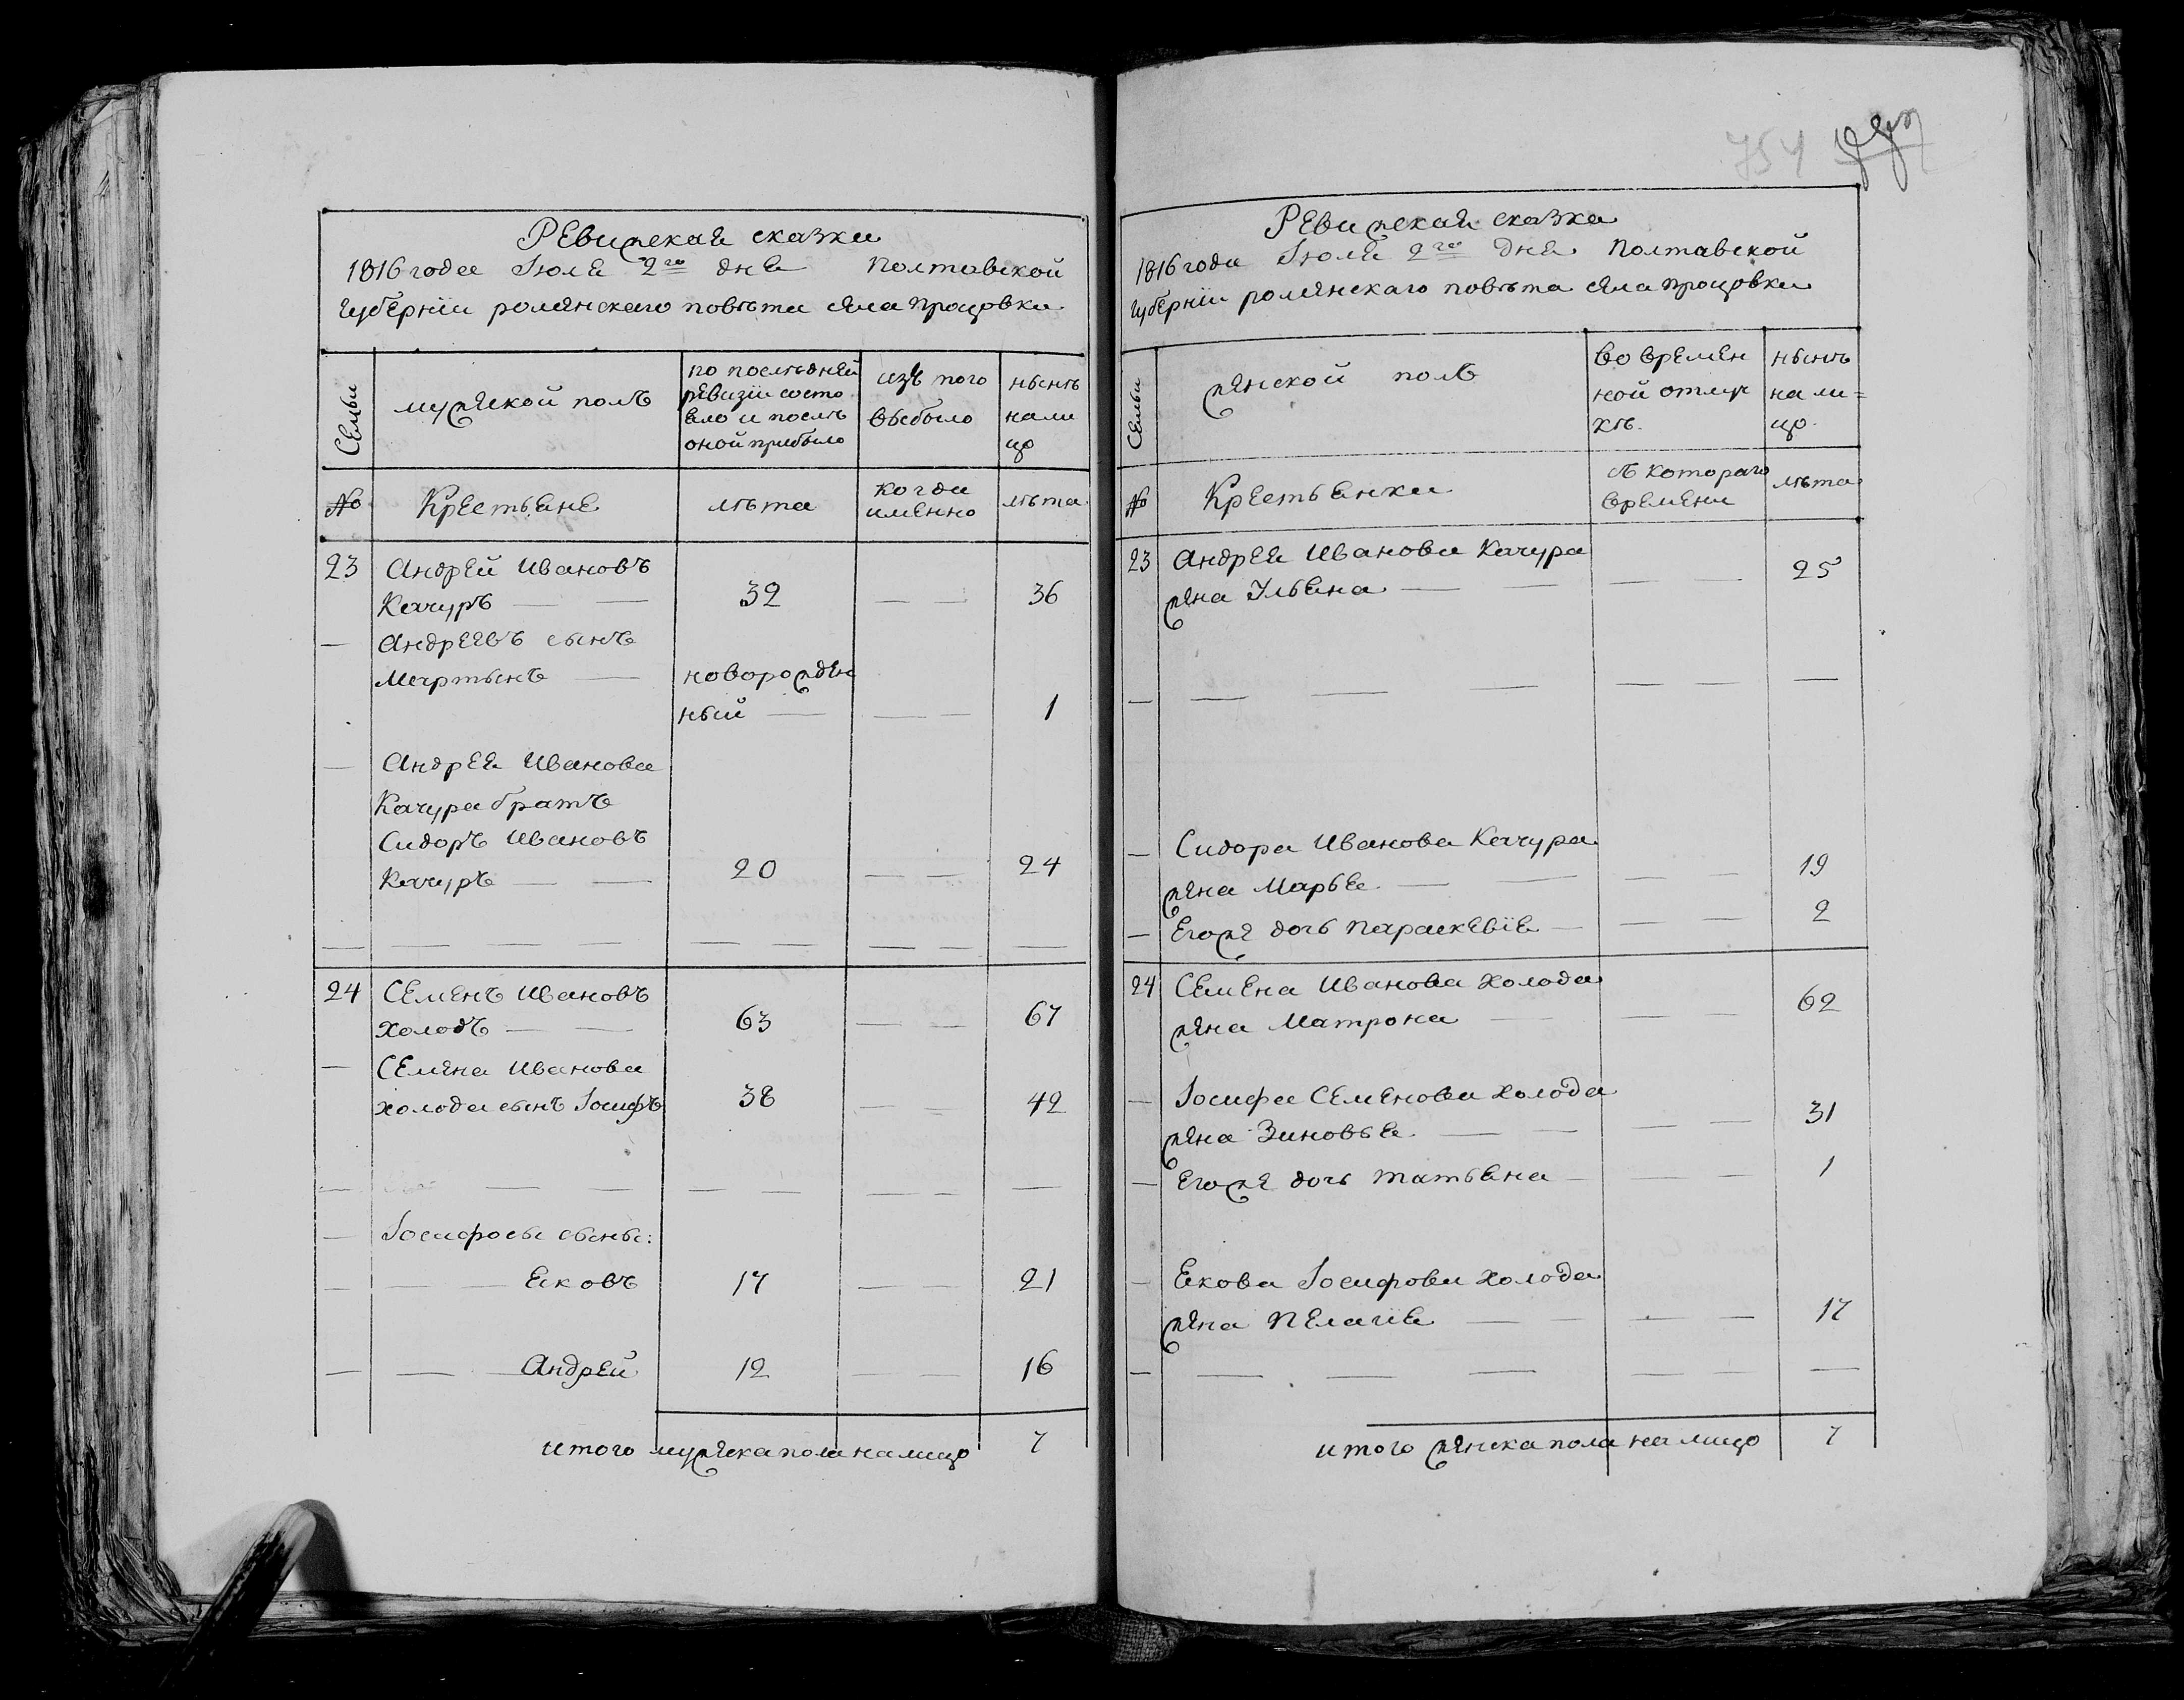 Ревижская сказка
1816 года Іюля 2го дня Полтавской
Губерніи роменскаго повѣта села процовки
Семьи
мужеской полъ
по послѣдней
ревизіи состо
яло и послѣ
оной прибыло
изъ того
выбыло
нынѣ
нали
цо
№
Крестьяне
лѣта
когда
именно
лѣта
23 Андрей Ивановъ
Качуръ — — 32 — — 36
— Андреевъ сынъ
Мартынъ — новорожден
ный — — — 1
— Андрея Иванова
Качура братъ
Сидоръ Ивановъ
Качуръ — — 20 — — 24
24 Семенъ Ивановъ
Холодъ — — 63 — — 67
— Семена Иванова
Холода сынъ Іосифъ 38 — — 42
— Іосифовы сыны:
— — — Яковъ 17 — — 21
— — — Андрей 12 — — 16
итого мужеска пола налицо 7
754
Ревижская сказка
1816 года Іюля 2го дня Полтавской
Губерніи роменскаго повѣта села процовки
Семьи
женской полъ
во времен
ной отлуч
кѣ.
нынѣ
на ли=
цо.
№
Крестьянки
съ котораго
времени
лѣта
23 Андрея Иванова Качура
жена Ульяна — — — — 25
— Сидора Иванова Качура
жена Марья — — — — 19
— Егожъ дочь Параскевія — — — 2
24 Семена Иванова Холода
жена Матрона — — — 62
— Іосифа Семенова Холода
жена Зиновья — — — — 31
— Егоже дочь Татьяна — — — 1
— Якова Іосифова Холода
жена Пелагія — — — — 17
итого женска пола на лицо 7